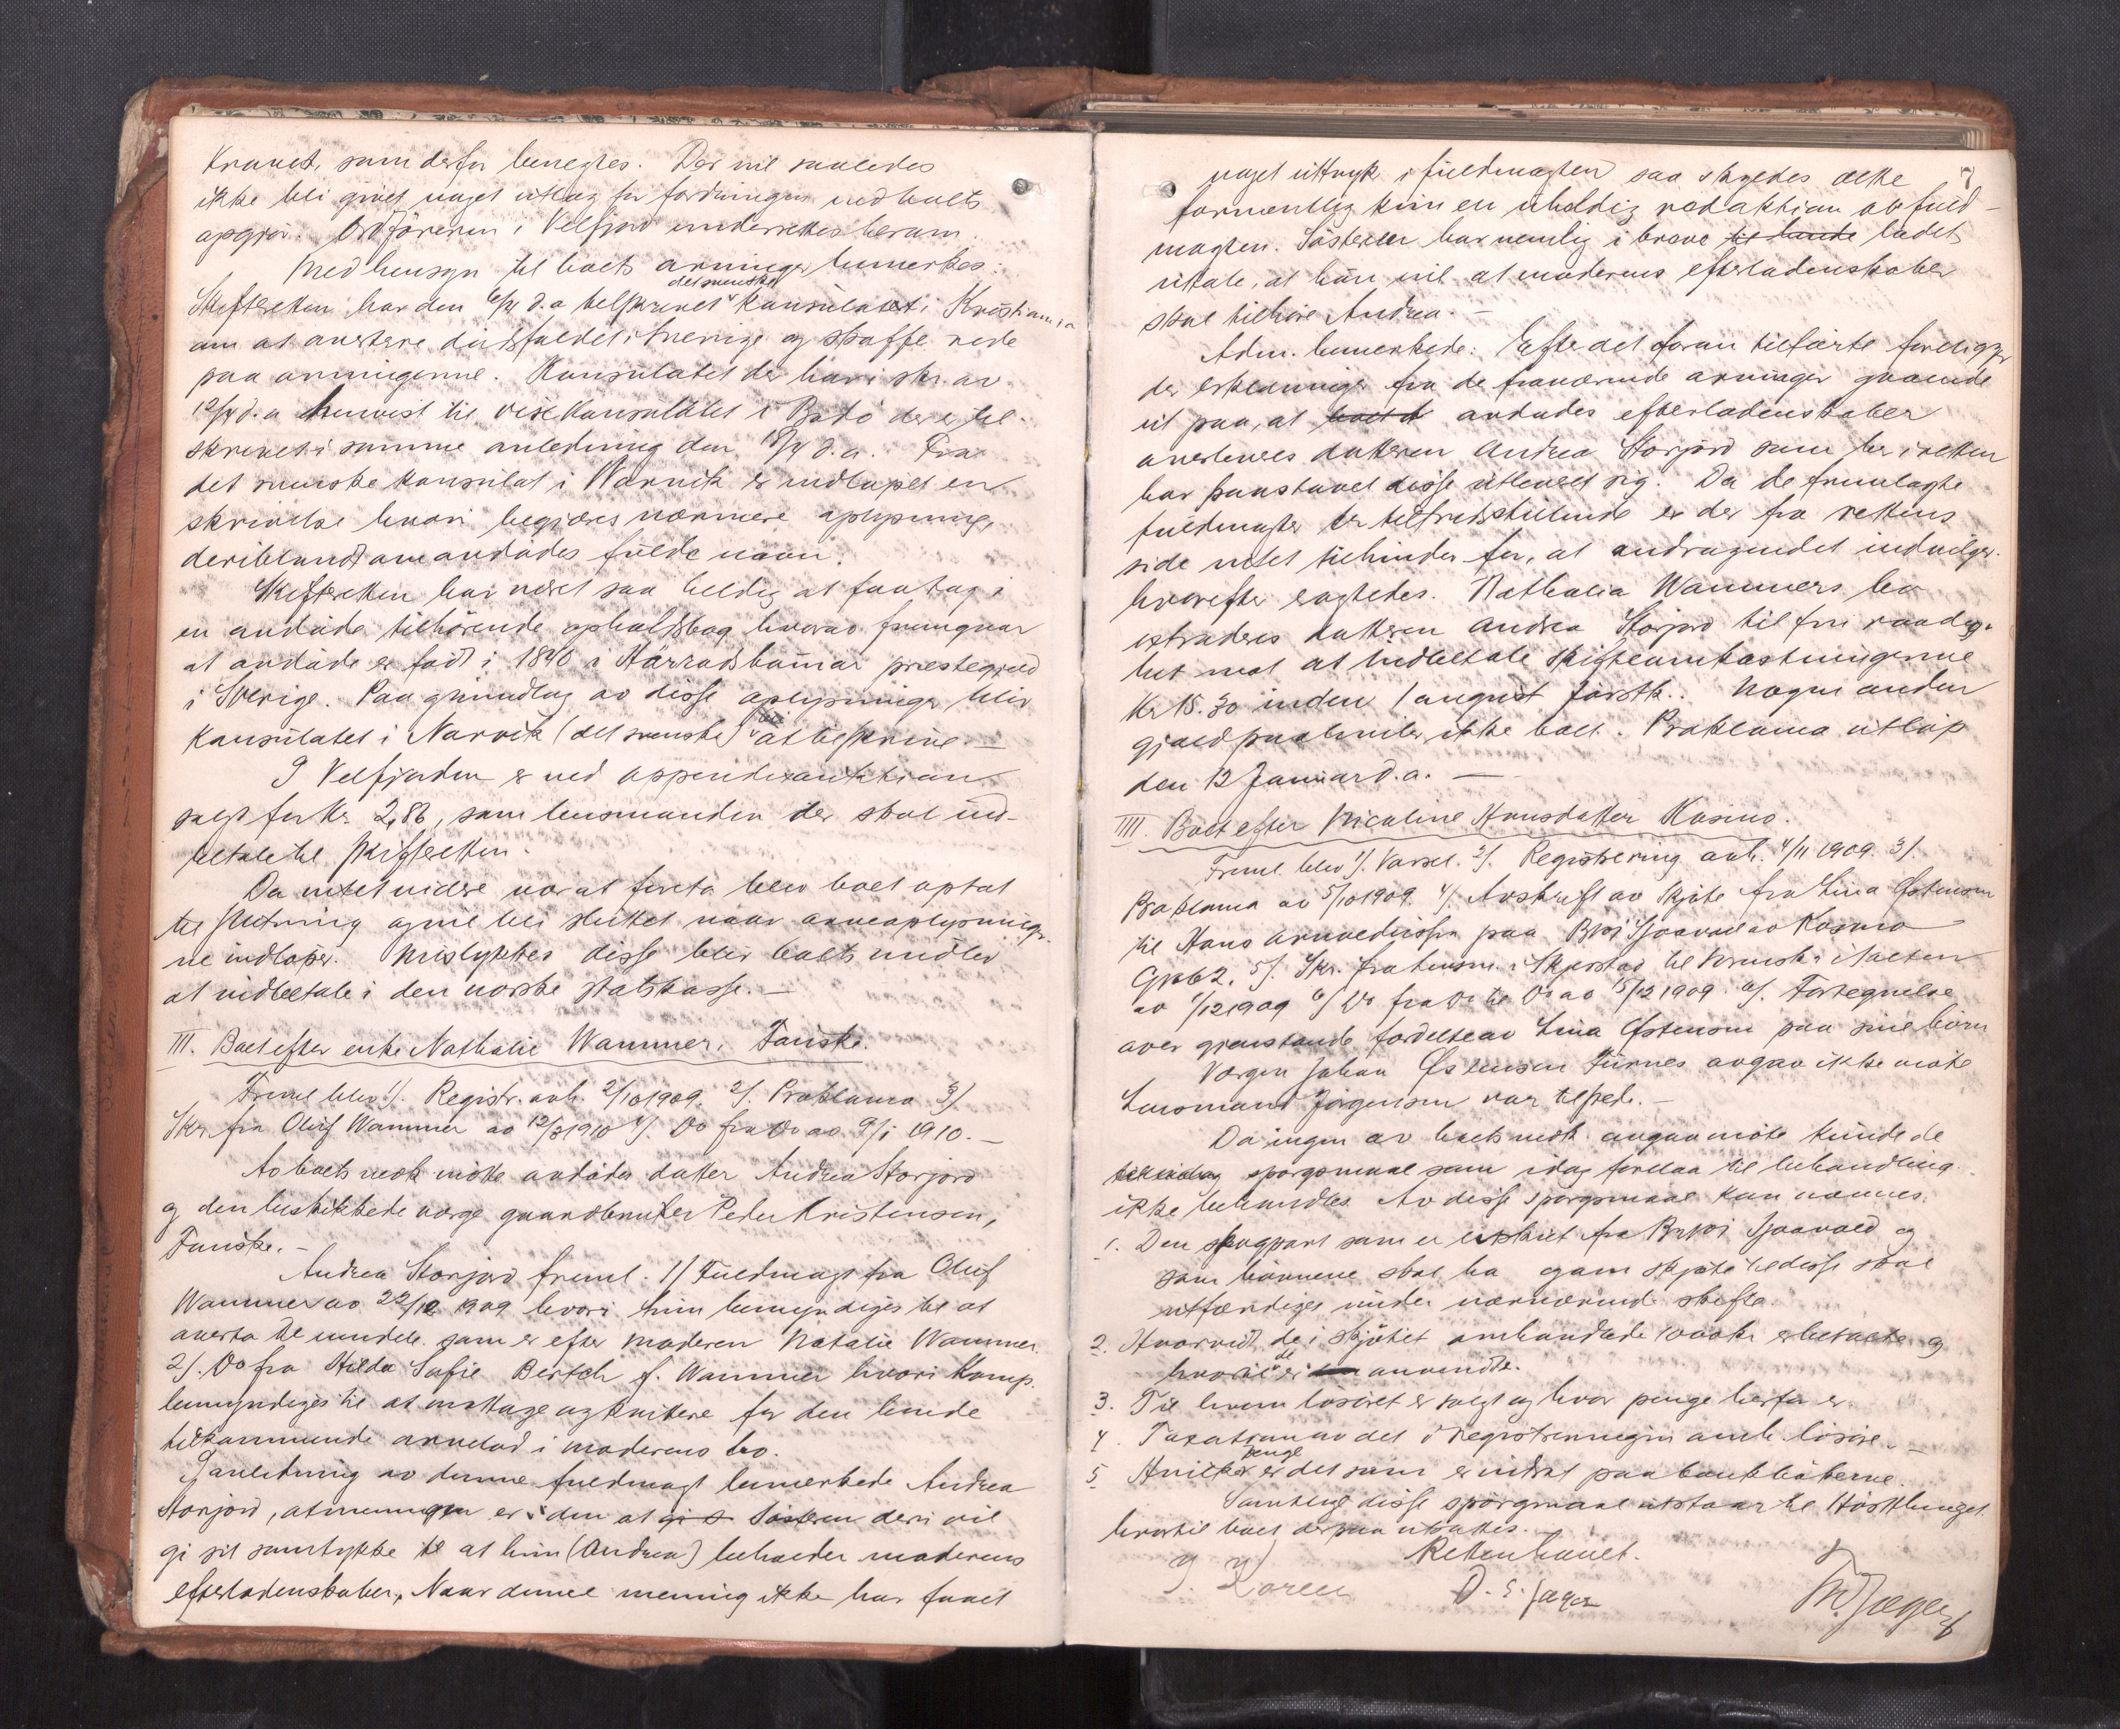 Kravet, som derfor benegtes. Der vil saaledes
ikke bli givet noget utlæg for fordringen ved boets
opgjør. Ordföreren i Velfjord underrettes herom.
Med hensyn til boets arvinger bemerkes:
Skifteretten har den 6/4 d.a. tilskrevet det svenske konsulatet i Kristiania
om at avertere dødsfaldet i Sverige og skaffe rede
paa arvingerne. Konsulatet der har i skr. av
12/4 d.a. henvist til visekonsulatet i Bodø der er til-
skrevet i samme anledning den d.a. Fra
det svenske konsulat i Narvik er indløpet en
skrivelse hvori begjæres nærmere oplysning,
deriblandt om avdødes fulde navn.
Skifteretten har været saa heldig at faa tag i
en avdøde tilhörende opholdsbog hvorav fremgaar
at avdøde er født i 1840 i Härradshammar prestegjæld
i Sverige. Paa grundlag av disse oplysninger blir
konsulatet i Narvik (det svenske) at tilskrive. —
I Velfjorden er ved auktion
solgt for Kr. 2,86, som lensmanden der skal ind-
betale til skifteretten.
Da intet videre var at foreta blev boet optat
til slutning og vil bli sluttet naar arveoplysninger-
ne indløper. Mislykkes disse blir boets midler
at indbetale i den norske statskasse. —
III. Boet efter enke Nathalie Wammer, Fauske.
Freml. blev 1/. Registr. avh. 2/10 1909. 2/. Proklama 3/
Skr. fra Oluf Wammer av 12/8 1910 4/. Do fra Do av 9/1 1910. —
Av boets vedk. møtte avdødes datter Andrea Storjord
og den beskikkede verge gaardbruker Peder Kristensen,
Fauske. —
Andrea Storjord freml. 1/ Fuldmagt fra Oluf
Wammer av 22/12 1909 hvori hun bemyndiges til at
overta de som er efter moderen Natalie Wammer.
2/. Do fra Hilda Sofie Bertch f. Wammer hvori Komp.
bemyndiges til at mottage og kvittere for den hende
tilkommende arvelod i moderens bo.
I anledning av denne fuldmagt bemerkede Andrea
Storjord, at meningen er den at søsteren deri vil
gi sit samtykke til at hun (Andrea) beholder moderens
efterladenskaber. Naar denne mening ikke har faaet
7
noget uttryk i fuldmagten saa skyldes dette
formentlig kun en uheldig redaktion av fuld-
magten. Søsteren har nemlig i breve til hende ladet
uttale, at hun vil at moderens efterladenskaber
skal tilhøre Andrea. —
Adm. bemerkede: Efter det foran tilførte foreligger
der erklæringer fra de fraværende arvinger gaaende
ut paa, at boet avdødes efterladenskaber
overleveres datteren Andrea Storjord som her i retten
har paastaaet disse utlevert sig. Da de fremlagte
fuldmagter er tilfredsstillende er der fra rettens
side intet tilhinder for, at andragendet indvilges.
hvorefter eragtedes. Nathalia Wammers bo
extraderes datteren Andrea Storjord til fri raadig-
het mot at indbetale skifteomkostningerne
Kr 15.30 inden 1 august førstk. Nogen anden
gjæld paahviler ikke boet. Proklama utløp
den 12 Januar d.a. —
IIII. Boet efter Nicoline Hansdatter Kosmo.
Freml. blev 1/. Varsel. 2/. Registrering avh. 4/11 1909. 3/.
Proklama av 5/10 1909. 4/. Avskrift av Skjøte fra Lina Østensen
til Hans paa av Kosmo
Gno 62. 5/. Skr. fra lensm. i Skjerstad til Sorensk. i Salten
av 1/12 1909 6/ Do fra Do til Do av 15/12 1909. Fortegnelse
over gjenstande fordelte av Lina Østensen paa sine børn
Vergen Johan Østensen Furnes avgav ikke møte
Lensmand Jørgensen var tilstede. —
Da ingen av boets vedk. avgav møte kunde de
spørgsmaal som idag forelaa til behandling
ikke behandles. Av disse spørgsmaal kan nævnes:
1. Den skogpart som er fra og
som børnene skal ha og om skjøte til disse skal
utfærdiges under nærværende skifte.
2. Hvorvidt de i skjøtet omhandlede 1000 kr er betalte og
hvortil de er anvendte.
3. Til hvem løsøret er solgt og hvor penge herfor er.
4. Taxation av det i registreringen omh. løsøre. —
5. Hvilke penge er det som er indsat paa bankbøkerne.
Samtlige disse spørgsmaal utstaar til Høsttinget
hvortil boet derpaa utsattes.
Retten hævet.
Koren
O. S. Jæger